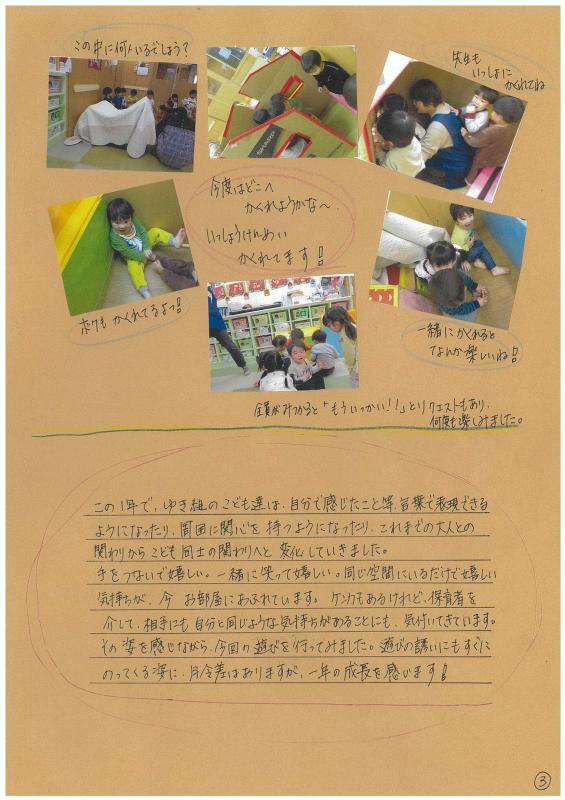 この中に何人いるでしょう?
先生も
いっしょに
かくれてね
SHARP
今度はどこへ
かくれようかな〜
いっしょうけんめい
かくれてます!
ボクもかくれてるよっ!
一緒にかくれると
なんか楽しいね!
全員がみつかると「もういっかい!!」とリクエストもあり、
何度も楽しみました。
この1年で、ゆき組のこども達は、自分で感じたこと等、言葉で表現できる
ようになったり、周囲に関心を持つようになったり、これまでの大人との
関わりからこども同士の関わりへと変化していきました。
手をつないで嬉しい。一緒に笑って嬉しい。同じ空間にいるだけで嬉しい
気持ちが、今お部屋にあふれています。ケンカもあるけれど、保育者を
介して、相手にも自分と同じような気持ちがあることにも、気付いてきています。
その姿を感じながら、今回の遊びを行ってみました。遊びの誘いにもすぐに
のってくる姿に、月令差はありますが、一年の成長を感じます!
③